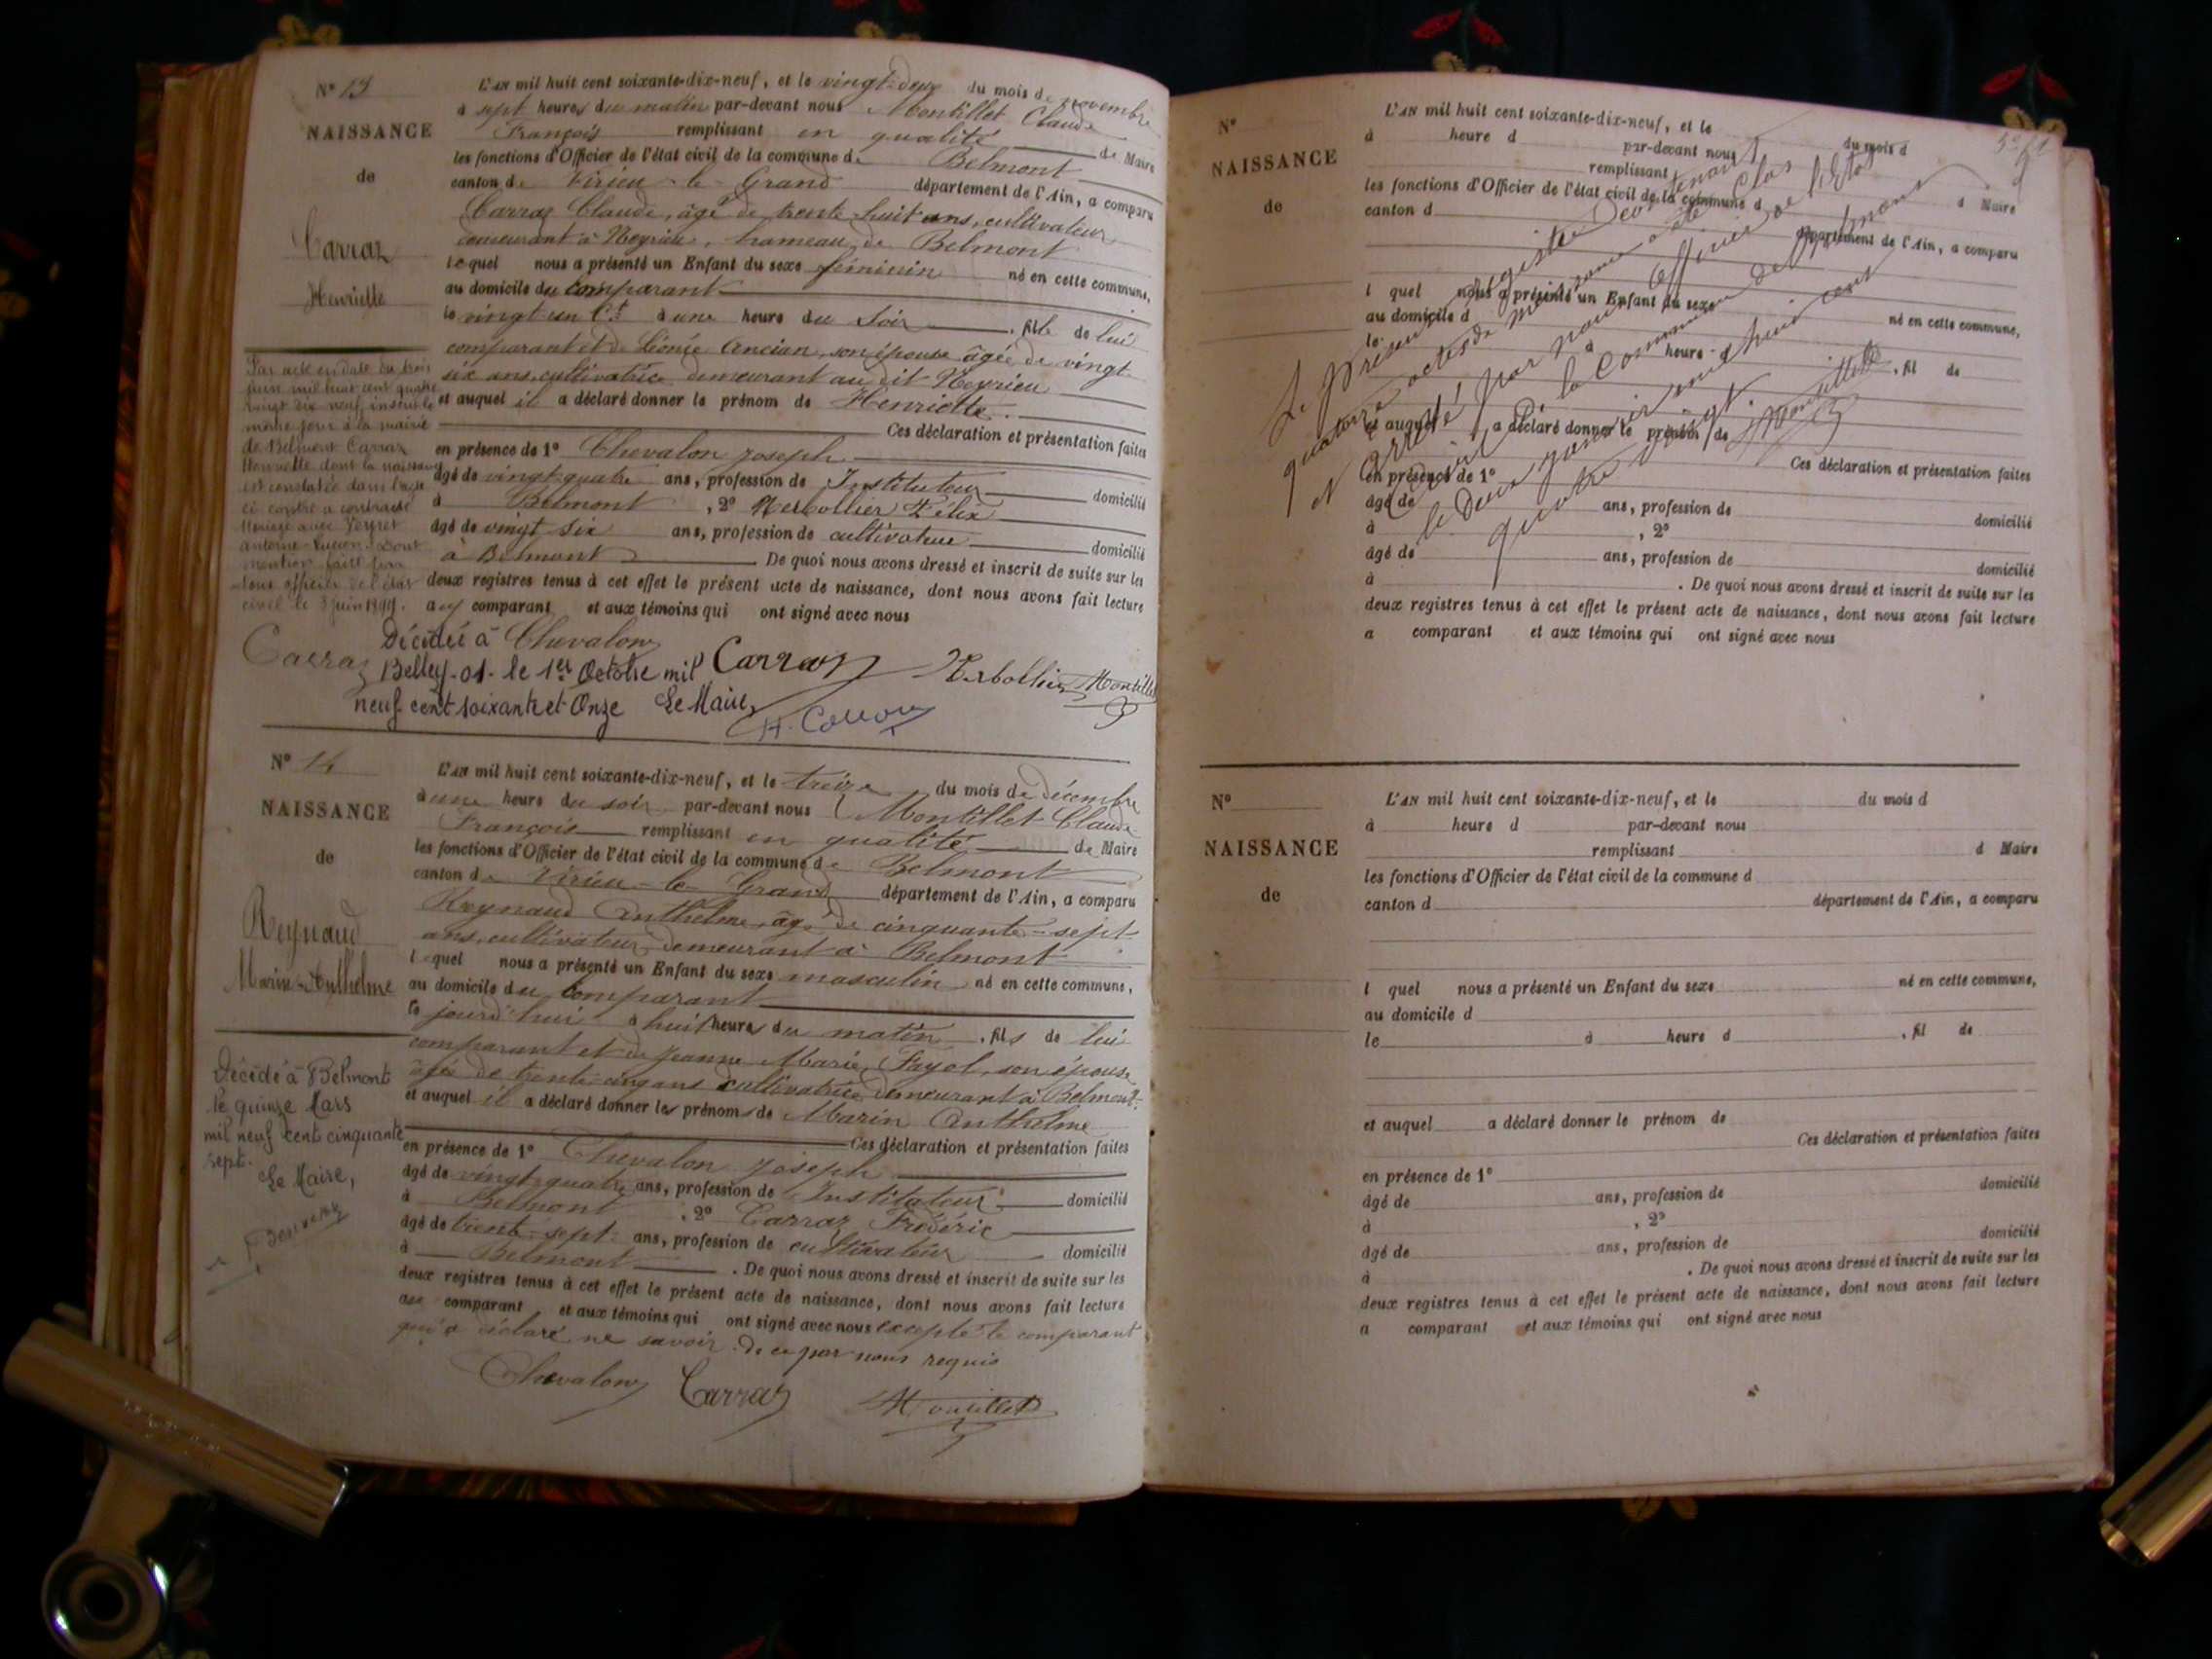 N° 13
NAISSANCE
de
Carraz
Henriette
L'AN mil huit cent soixante-dix-neuf, et le vingt-deux du mois de novembre
à sept heures du matin par-devant nous Montillet Claude
François remplissant en qualité de Maire
les fonctions d'Officier de l'état civil de la commune de Belmont
canton de Virieu-le-Grand département de l'Ain, a comparu
Carraz Claude, âgé de trente huit ans, cultivateur
demeurant à Neyrieu, hameau de Belmont
lequel nous a présenté un Enfant du sexe féminin né en cette commune,
au domicile du comparant
le vingt un Ct à une heure du soir, fille de lui
comparant et de Léonie Ancian, son épouse âgée de vingt
six ans, cultivatrice demeurant au dit Neyrieu
et auquel il a déclaré donner le prénom de Henriette.
Ces déclaration et présentation faites
en présence de 1° Chevalon Joseph
âgé de vingt-quatre ans, profession de Instituteur domicilié
à Belmont, 2° Herbollier Félix
âgé de vingt six ans, profession de cultivateur domicilié
à Belmont De quoi nous avons dressé et inscrit de suite sur les
deux registres tenus à cet effet le présent acte de naissance, dont nous avons fait lecture
aux comparant et aux témoins qui ont signé avec nous
Par acte en date du trois
juin mil huit cent quatre
vingt dix neuf inscrit le
même jour à la mairie
de Belmont Carraz
Henriette dont la naissance
est constatée dans l'acte
ci contre a contracté
Mariage avec Veyret
antoine-Lucien. Dont
mention faite par
nous officier de l'état
civil le 3 juin 1899.
Carraz
Chevalon
Carraz
Herbollier
Montillet
Décédée à
Belley-01- le 1er Octobre mil
neuf cent soixante et Onze Le Maire,
N° 14
NAISSANCE
de
Reynaud
Marin-Anthelme
L'AN mil huit cent soixante-dix-neuf, et le treize du mois de décembre
à une heure du soir par-devant nous Montillet Claude
François remplissant en qualité de Maire
les fonctions d'Officier de l'état civil de la commune de Belmont
canton de Virieu-le-Grand département de l'Ain, a comparu
Reynaud Anthelme, âgé de cinquante-sept
ans, cultivateur demeurant à Belmont
l quel nous a présenté un Enfant du sexe masculin né en cette commune,
au domicile du comparant
le jourd'hui à huit heures du matin, fils de lui
comparant et de Jeanne Marie Fayol, son épouse
âgée de trente cinq ans cultivatrice demeurant à Belmont.
et auquel il a déclaré donner les prénoms de Marin Anthelme
Ces déclaration et présentation faites
en présence de 1° Chevalon Joseph
âgé de vingt-quatre ans, profession de Instituteur domicilié
à Belmont, 2° Carraz Frédéric
âgé de trente-sept ans, profession de cultivateur domicilié
à Belmont. De quoi nous avons dressé et inscrit de suite sur les
deux registres tenus à cet effet le présent acte de naissance, dont nous avons fait lecture
au comparant et aux témoins qui ont signé avec nous excepté le comparant
qui a déclaré ne savoir de ce par nous requis
Chevalon Carraz Montillet
Décédé à Belmont
le quinze Mars
mil neuf cent cinquante
sept.
Le Maire,
N°
NAISSANCE
de
L'AN mil huit cent soixante-dix-neuf, et le du mois d
à heure d par-devant nous
remplissant d Maire
les fonctions d'Officier de l'état civil de la commune d
canton d département de l'Ain, a comparu
l quel nous a présenté un Enfant du sexe né en cette commune,
au domicile d
le à heure d, fil de
et auquel a déclaré donner le prénom de
Ces déclaration et présentation faites
en présence de 1°
âgé de ans, profession de domicilié
à, 2°
âgé de ans, profession de domicilié
à. De quoi nous avons dressé et inscrit de suite sur les
deux registres tenus à cet effet le présent acte de naissance, dont nous avons fait lecture
a comparant et aux témoins qui ont signé avec nous
Le présent registre contenant
quatorze actes de naissance a été clos
et arrêté par nous officier de l'état
civil de la Commune de Belmont
le deux janvier mil huit cent
quatre vingt.
Montillet
N°
NAISSANCE
de
L'AN mil huit cent soixante-dix-neuf, et le du mois d
à heure d par-devant nous
remplissant d Maire
les fonctions d'Officier de l'état civil de la commune d
canton d département de l'Ain, a comparu
l quel nous a présenté un Enfant du sexe né en cette commune,
au domicile d
le à heure d, fil de
et auquel a déclaré donner le prénom de
Ces déclaration et présentation faites
en présence de 1°
âgé de ans, profession de domicilié
à, 2°
âgé de ans, profession de domicilié
à. De quoi nous avons dressé et inscrit de suite sur les
deux registres tenus à cet effet le présent acte de naissance, dont nous avons fait lecture
a comparant et aux témoins qui ont signé avec nous